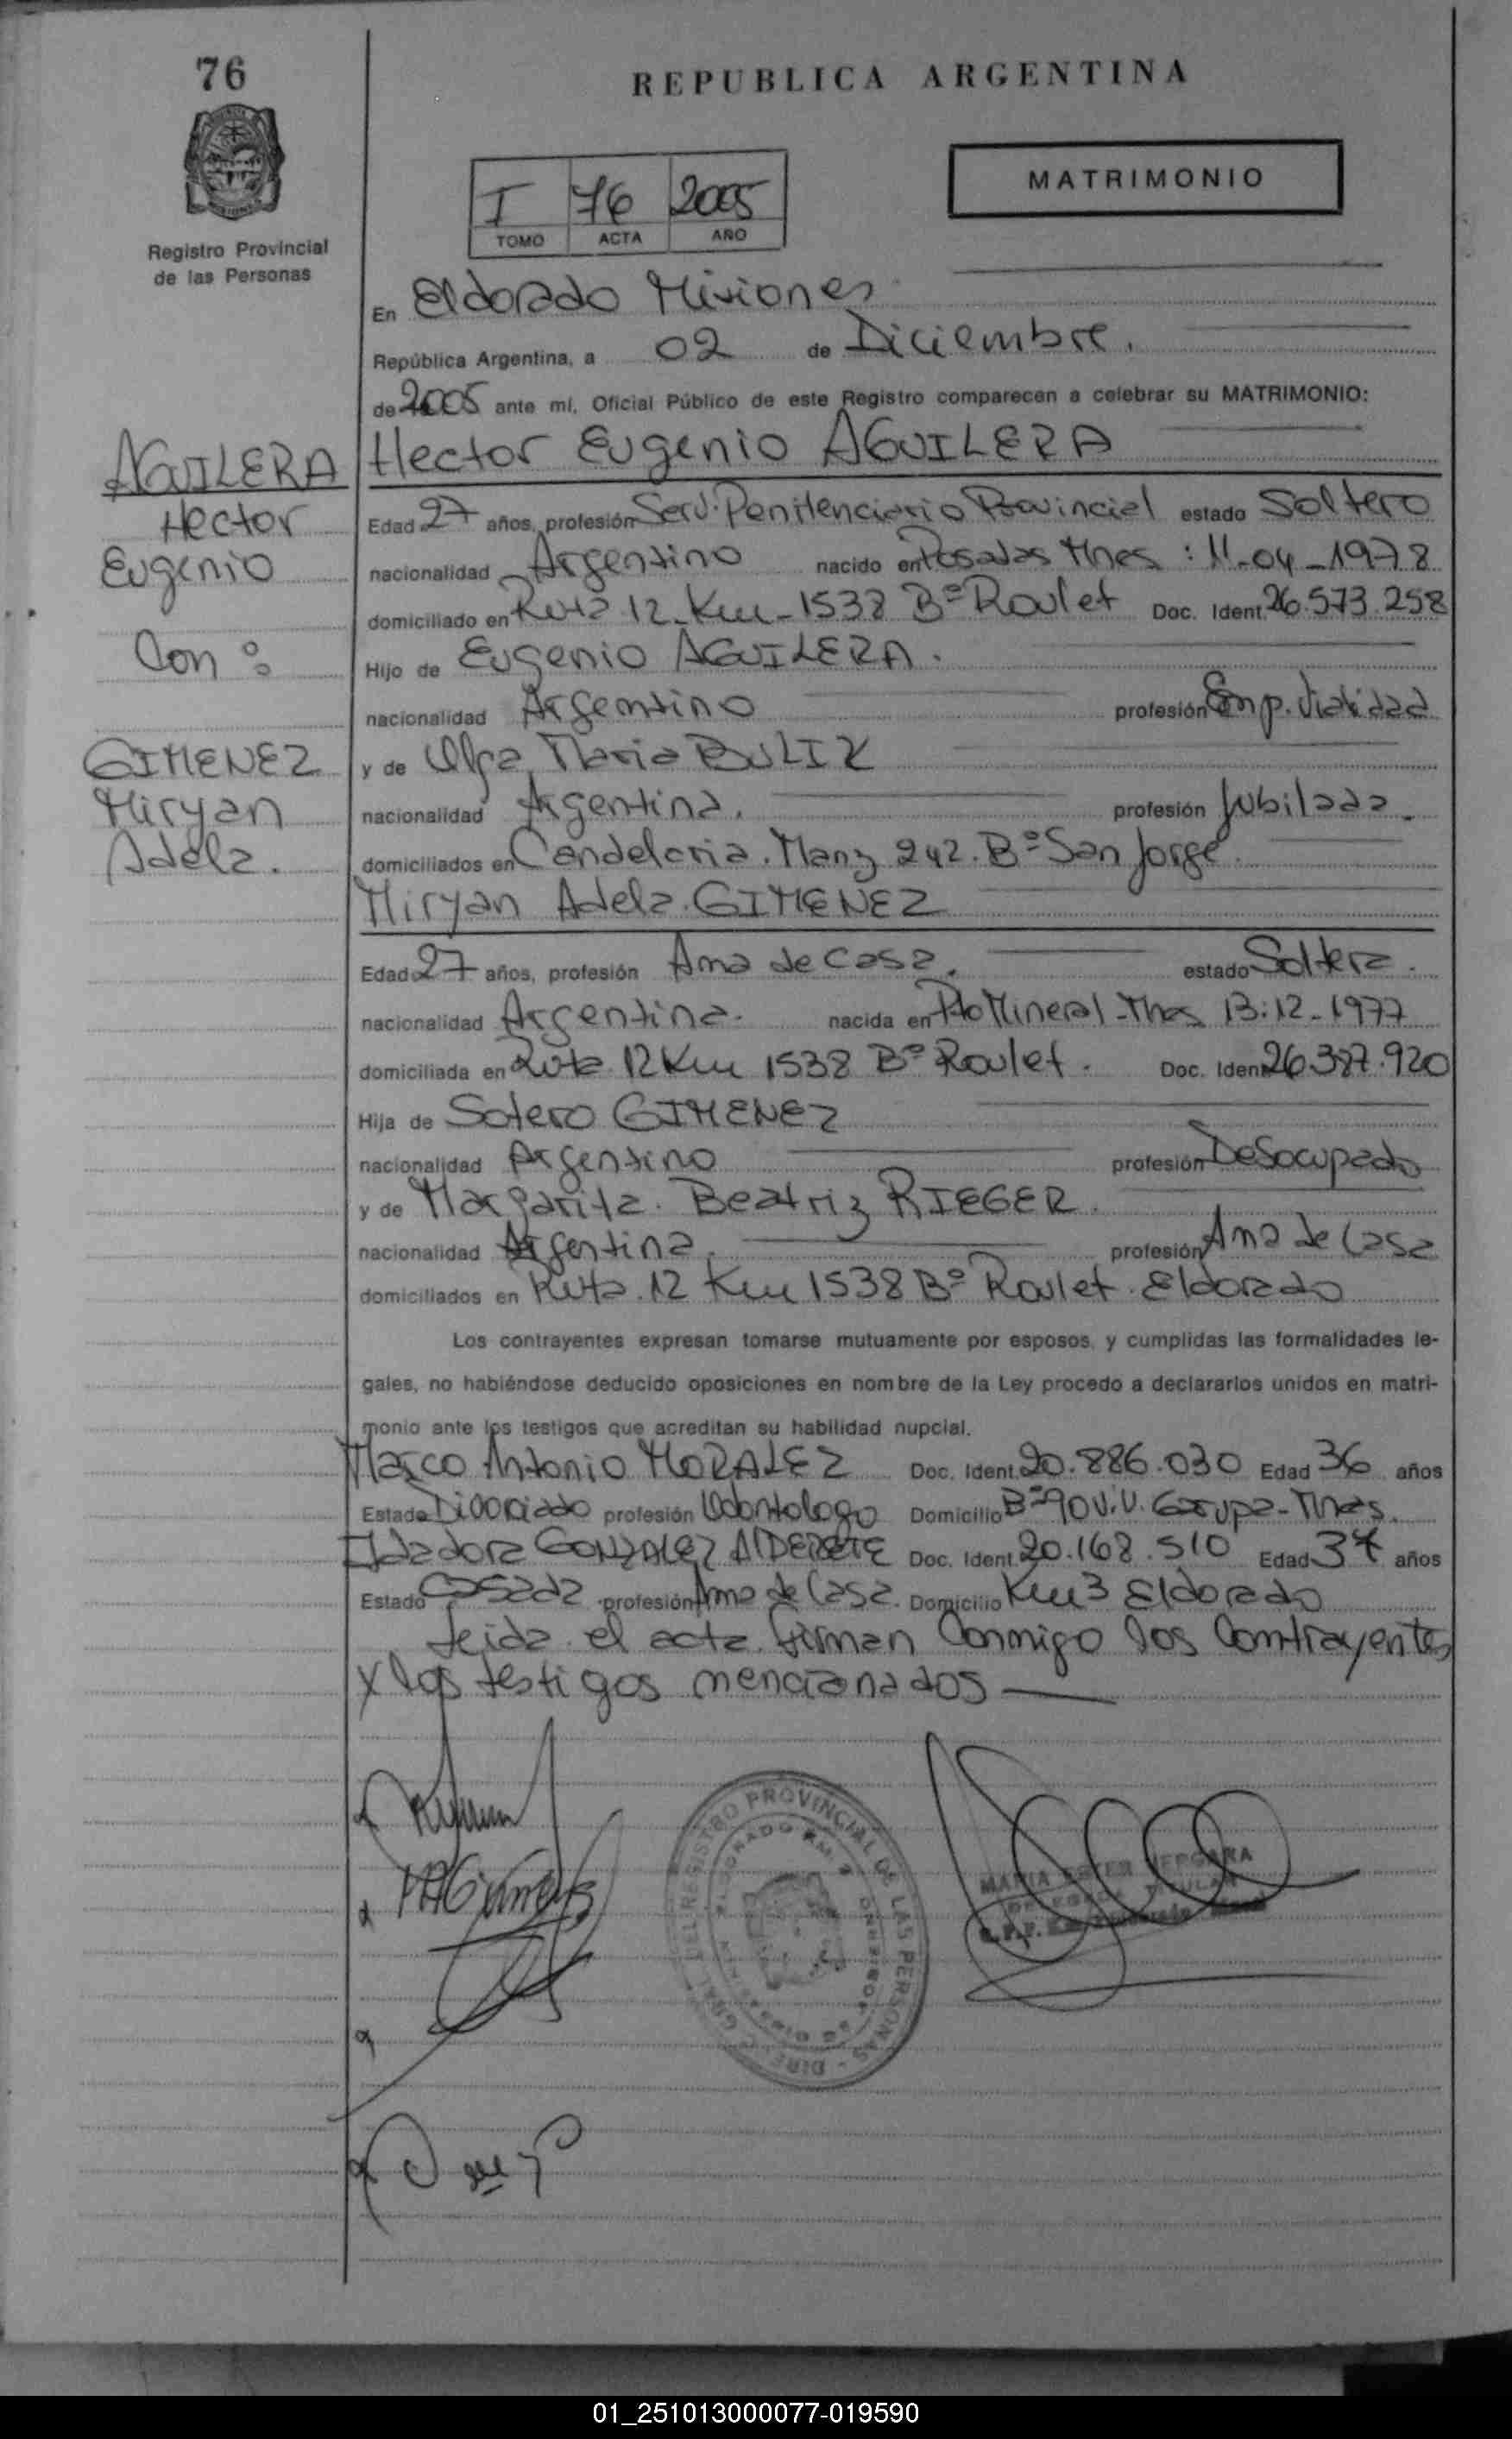 76
REPUBLICA ARGENTINA
Registro Provincial
de las Personas
I 76 2005
TOMO ACTA AÑO
MATRIMONIO
En Eldorado Misiones
República Argentina, a 02 de Diciembre.
de 2005 ante mí, Oficial Público de este Registro comparecen a celebrar su MATRIMONIO:
AGUILERA
Hector
Eugenio
Con :
GIMENEZ
Miryan
Adela.
Hector Eugenio AGUILERA
Edad 27 años, profesión Serv. Penitenciario Provincial estado Soltero
nacionalidad Argentino nacido en Posadas Mnes : 11-04-1978
domiciliado en Ruta 12 Km-1538 Bº Roulet Doc. Ident. 26.573.258
Hijo de Eugenio AGUILERA.
nacionalidad Argentino profesión Emp. Vialidad
y de Olga Maria BULIK
nacionalidad Argentina. profesión Jubilada.
domiciliados en Candelaria. Manz 242. Bº San Jorge.
Miryan Adela GIMENEZ
Edad 27 años, profesión Ama de Casa. estado Soltera.
nacionalidad Argentina. nacida en Pto Mineral-Mnes 13:12-1977
domiciliada en Ruta 12 Km 1538 Bº Roulet. Doc. Ident. 26.387.920
Hija de Sotero GIMENEZ
nacionalidad Argentino profesión Desocupado
y de Margarita Beatriz RIEGER.
nacionalidad Argentina. profesión Ama de Casa
domiciliados en Ruta 12 Km 1538 Bº Roulet. Eldorado
Los contrayentes expresan tomarse mutuamente por esposos, y cumplidas las formalidades le-
gales, no habiéndose deducido oposiciones en nombre de la Ley procedo a declararlos unidos en matri-
monio ante los testigos que acreditan su habilidad nupcial.
Marco Antonio MORALEZ Doc. Ident. 20.886.030 Edad 36 años
Estado Divorciado profesión Odontologo Domicilio Bº 90 V.V. Garupa-Mnes.
GONZALEZ ALDERETE Doc. Ident. 20.168.510 Edad 37 años
Estado Casada profesión Ama de Casa. Domicilio Km 3 Eldorado
Leida el acta firman Conmigo los Contrayentes
y los testigos mencionados
REGISTRO PROVINCIAL DE LAS PERSONAS
MARIA ESTER VERGARA
01_251013000077-019590